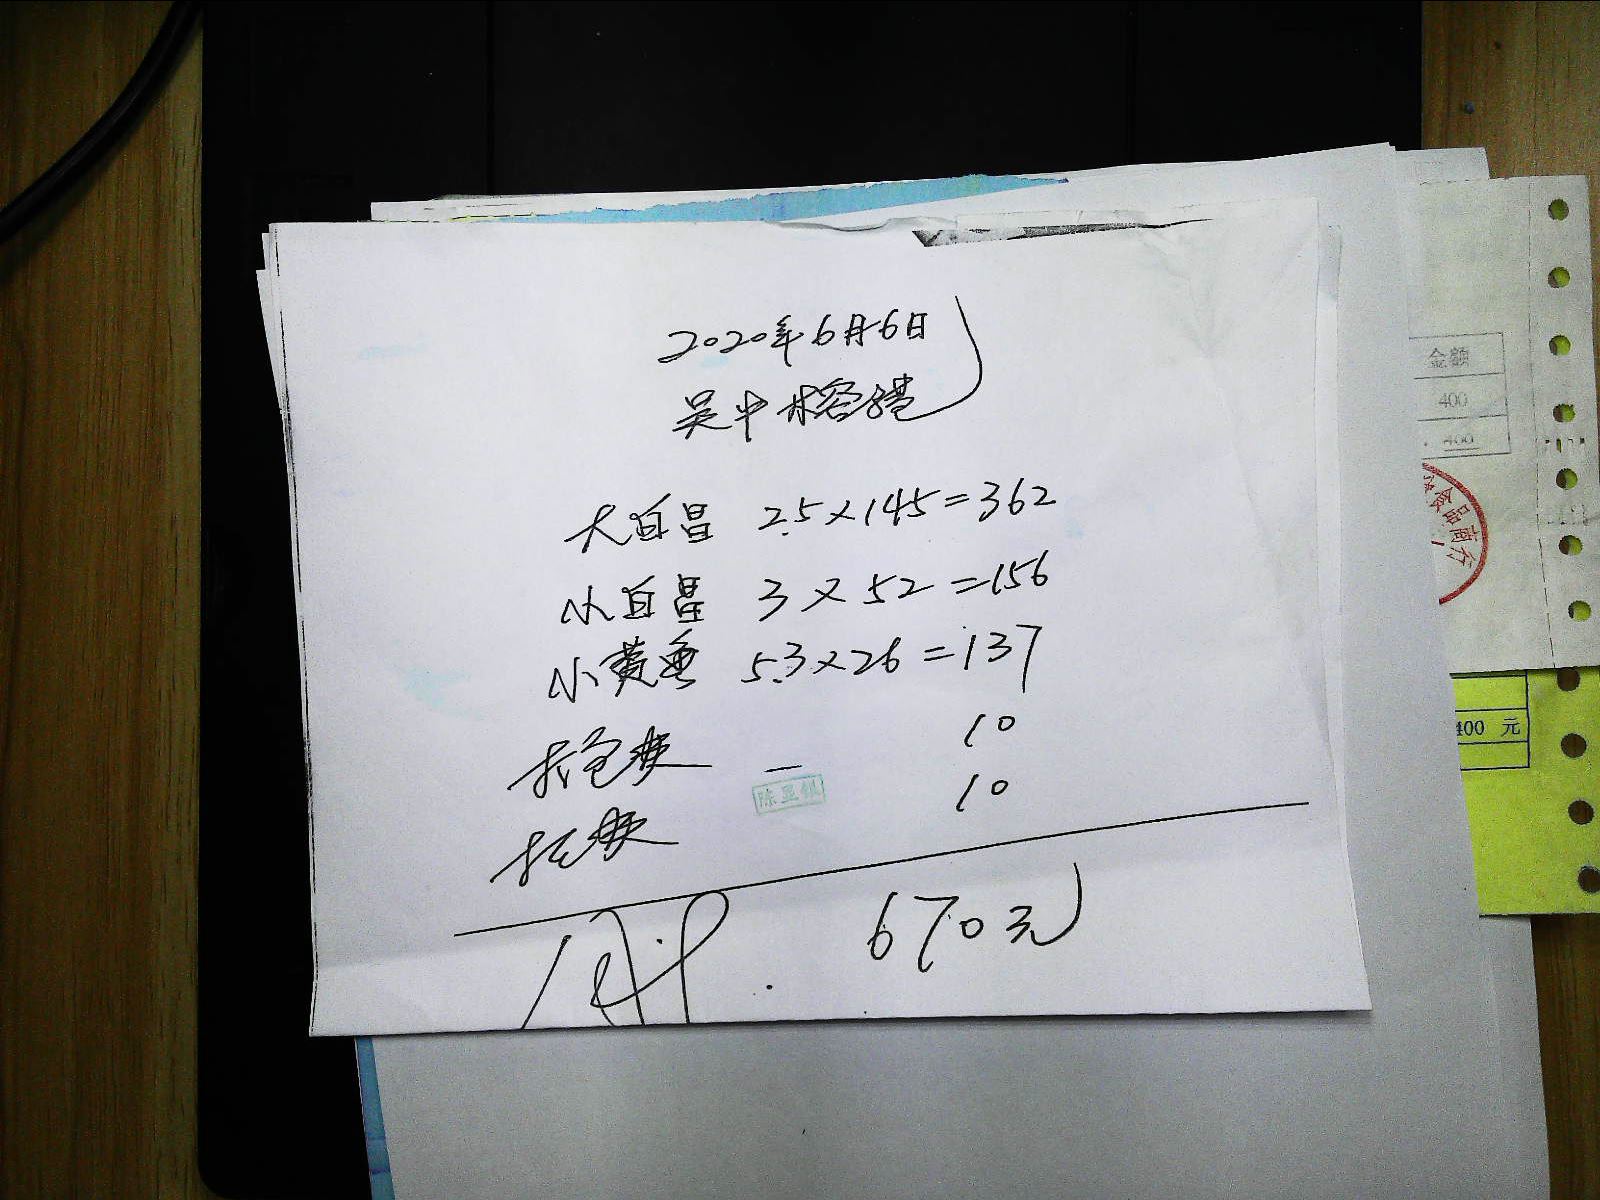 2020年6月6日
吴中榕港
大白昌 2.5×145=362
小白昌 3×52=156
小黄鱼 5.3×26=137
打包费 10
打的费 10
670元
金额
400
400
食品商行
400 元